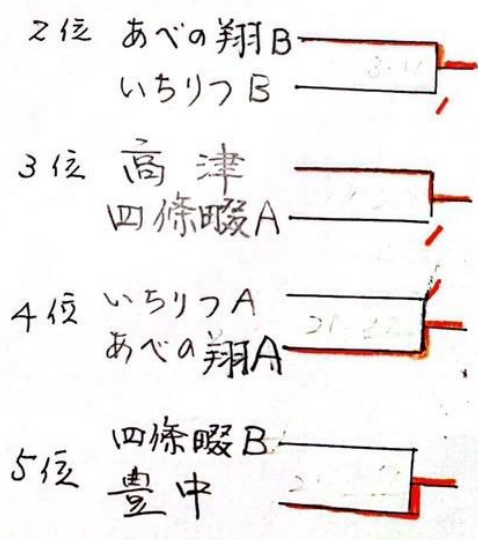 2位 あべの翔B
いちりつB
3位 高津
四條畷A
4位 いちりつA
あべの翔A
5位 四條畷B
豊中